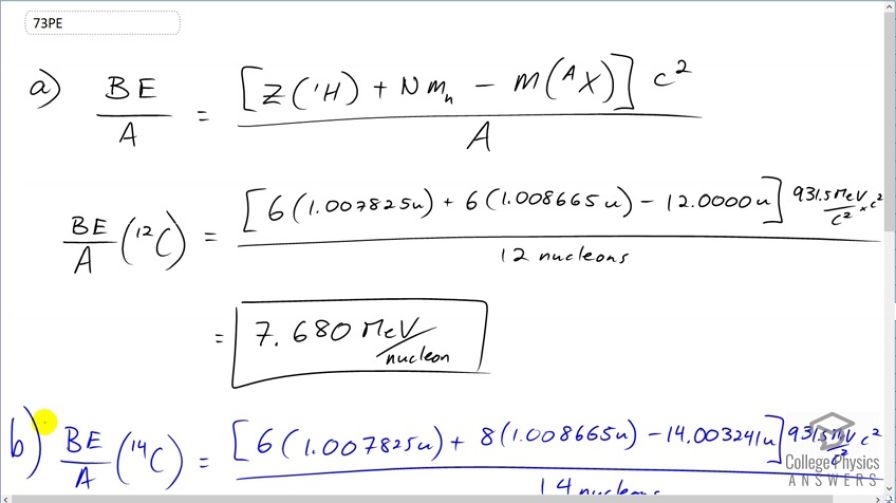 73PE
a) BE/A = [Z(¹H) + Nmₙ − m(ᴬX)] c² / A
BE/A (¹²C) = [6(1.007825u) + 6(1.008665u) − 12.0000u] 931.5 MeV/c² × c² / 12 nucleons
= 7.680 MeV/nucleon
b) BE/A (¹⁴C) = [6(1.007825u) + 8(1.008665u) − 14.003241u] 931.5 MeV/c² c² / 14 nucleons
College Physics
ANSWERS